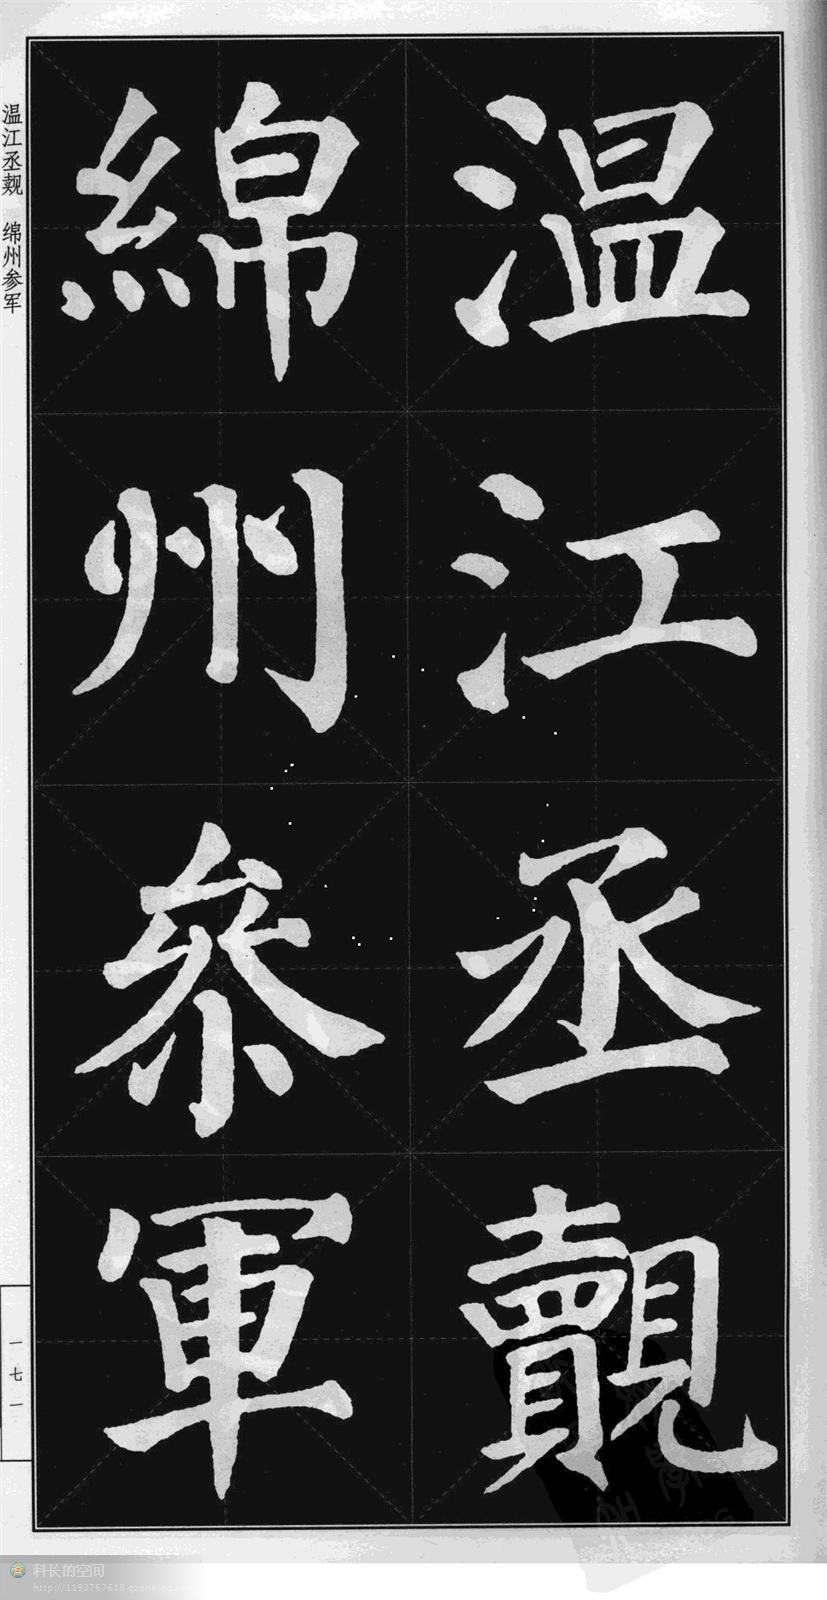 温江丞覿
綿州参軍
温江丞觌 绵州参军
一七一
科长的空间
http://1193767618.qzone.qq.com